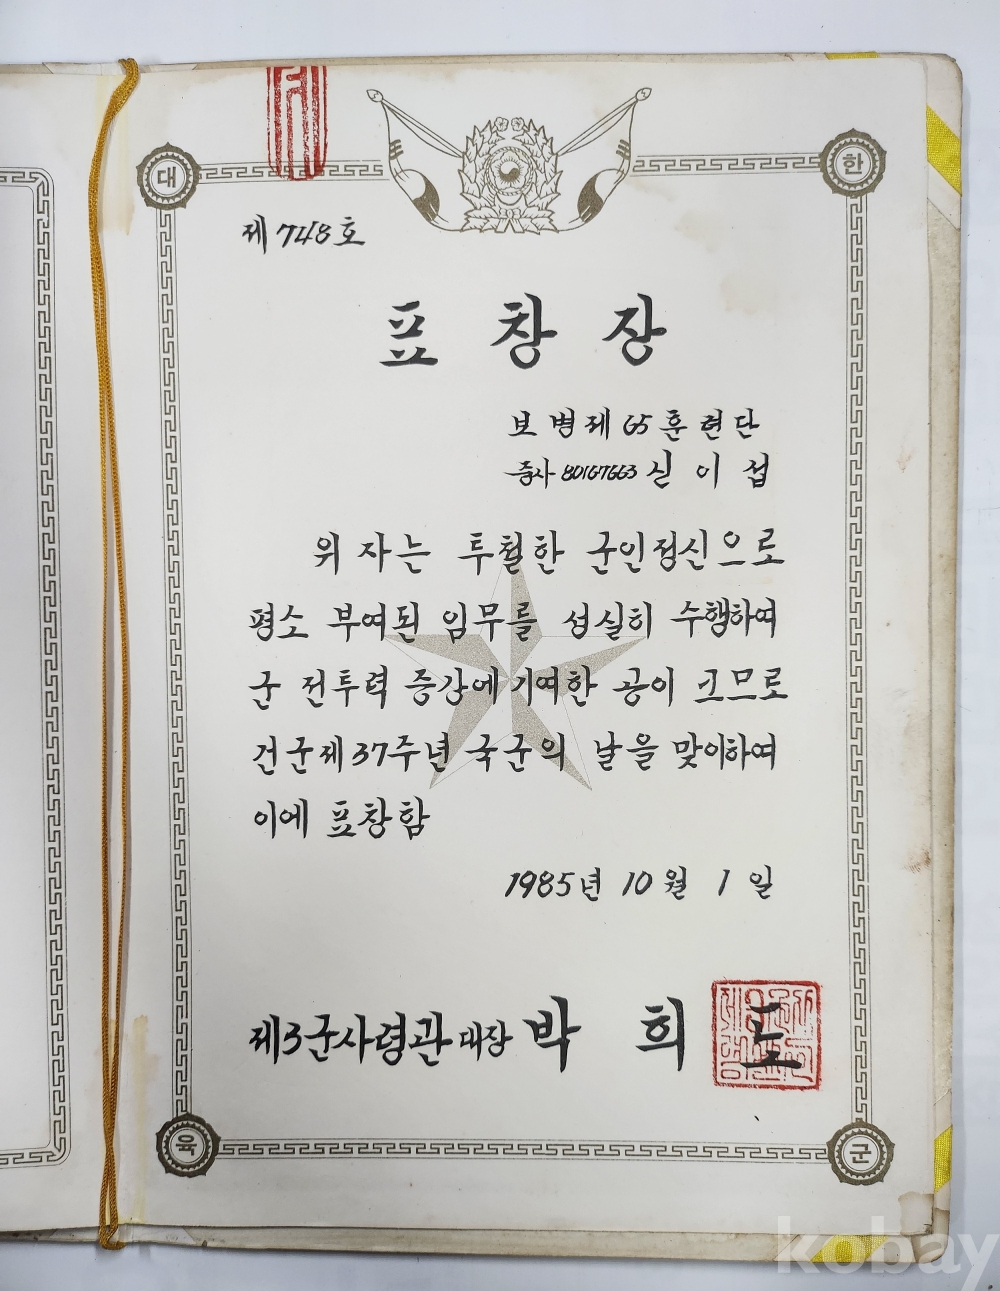 대 한
제 748 호
표 창 장
보병제 65 훈련단
중사 80167663 신 이 섭
위 자는 투철한 군인정신으로
평소 부여된 임무를 성실히 수행하여
군 전투력 증강에 기여한 공이 크므로
건군제 37주년 국군의 날을 맞이하여
이에 표창함
1985년 10월 1일
제3군사령관 대장 박 희 도
육 군
kobay